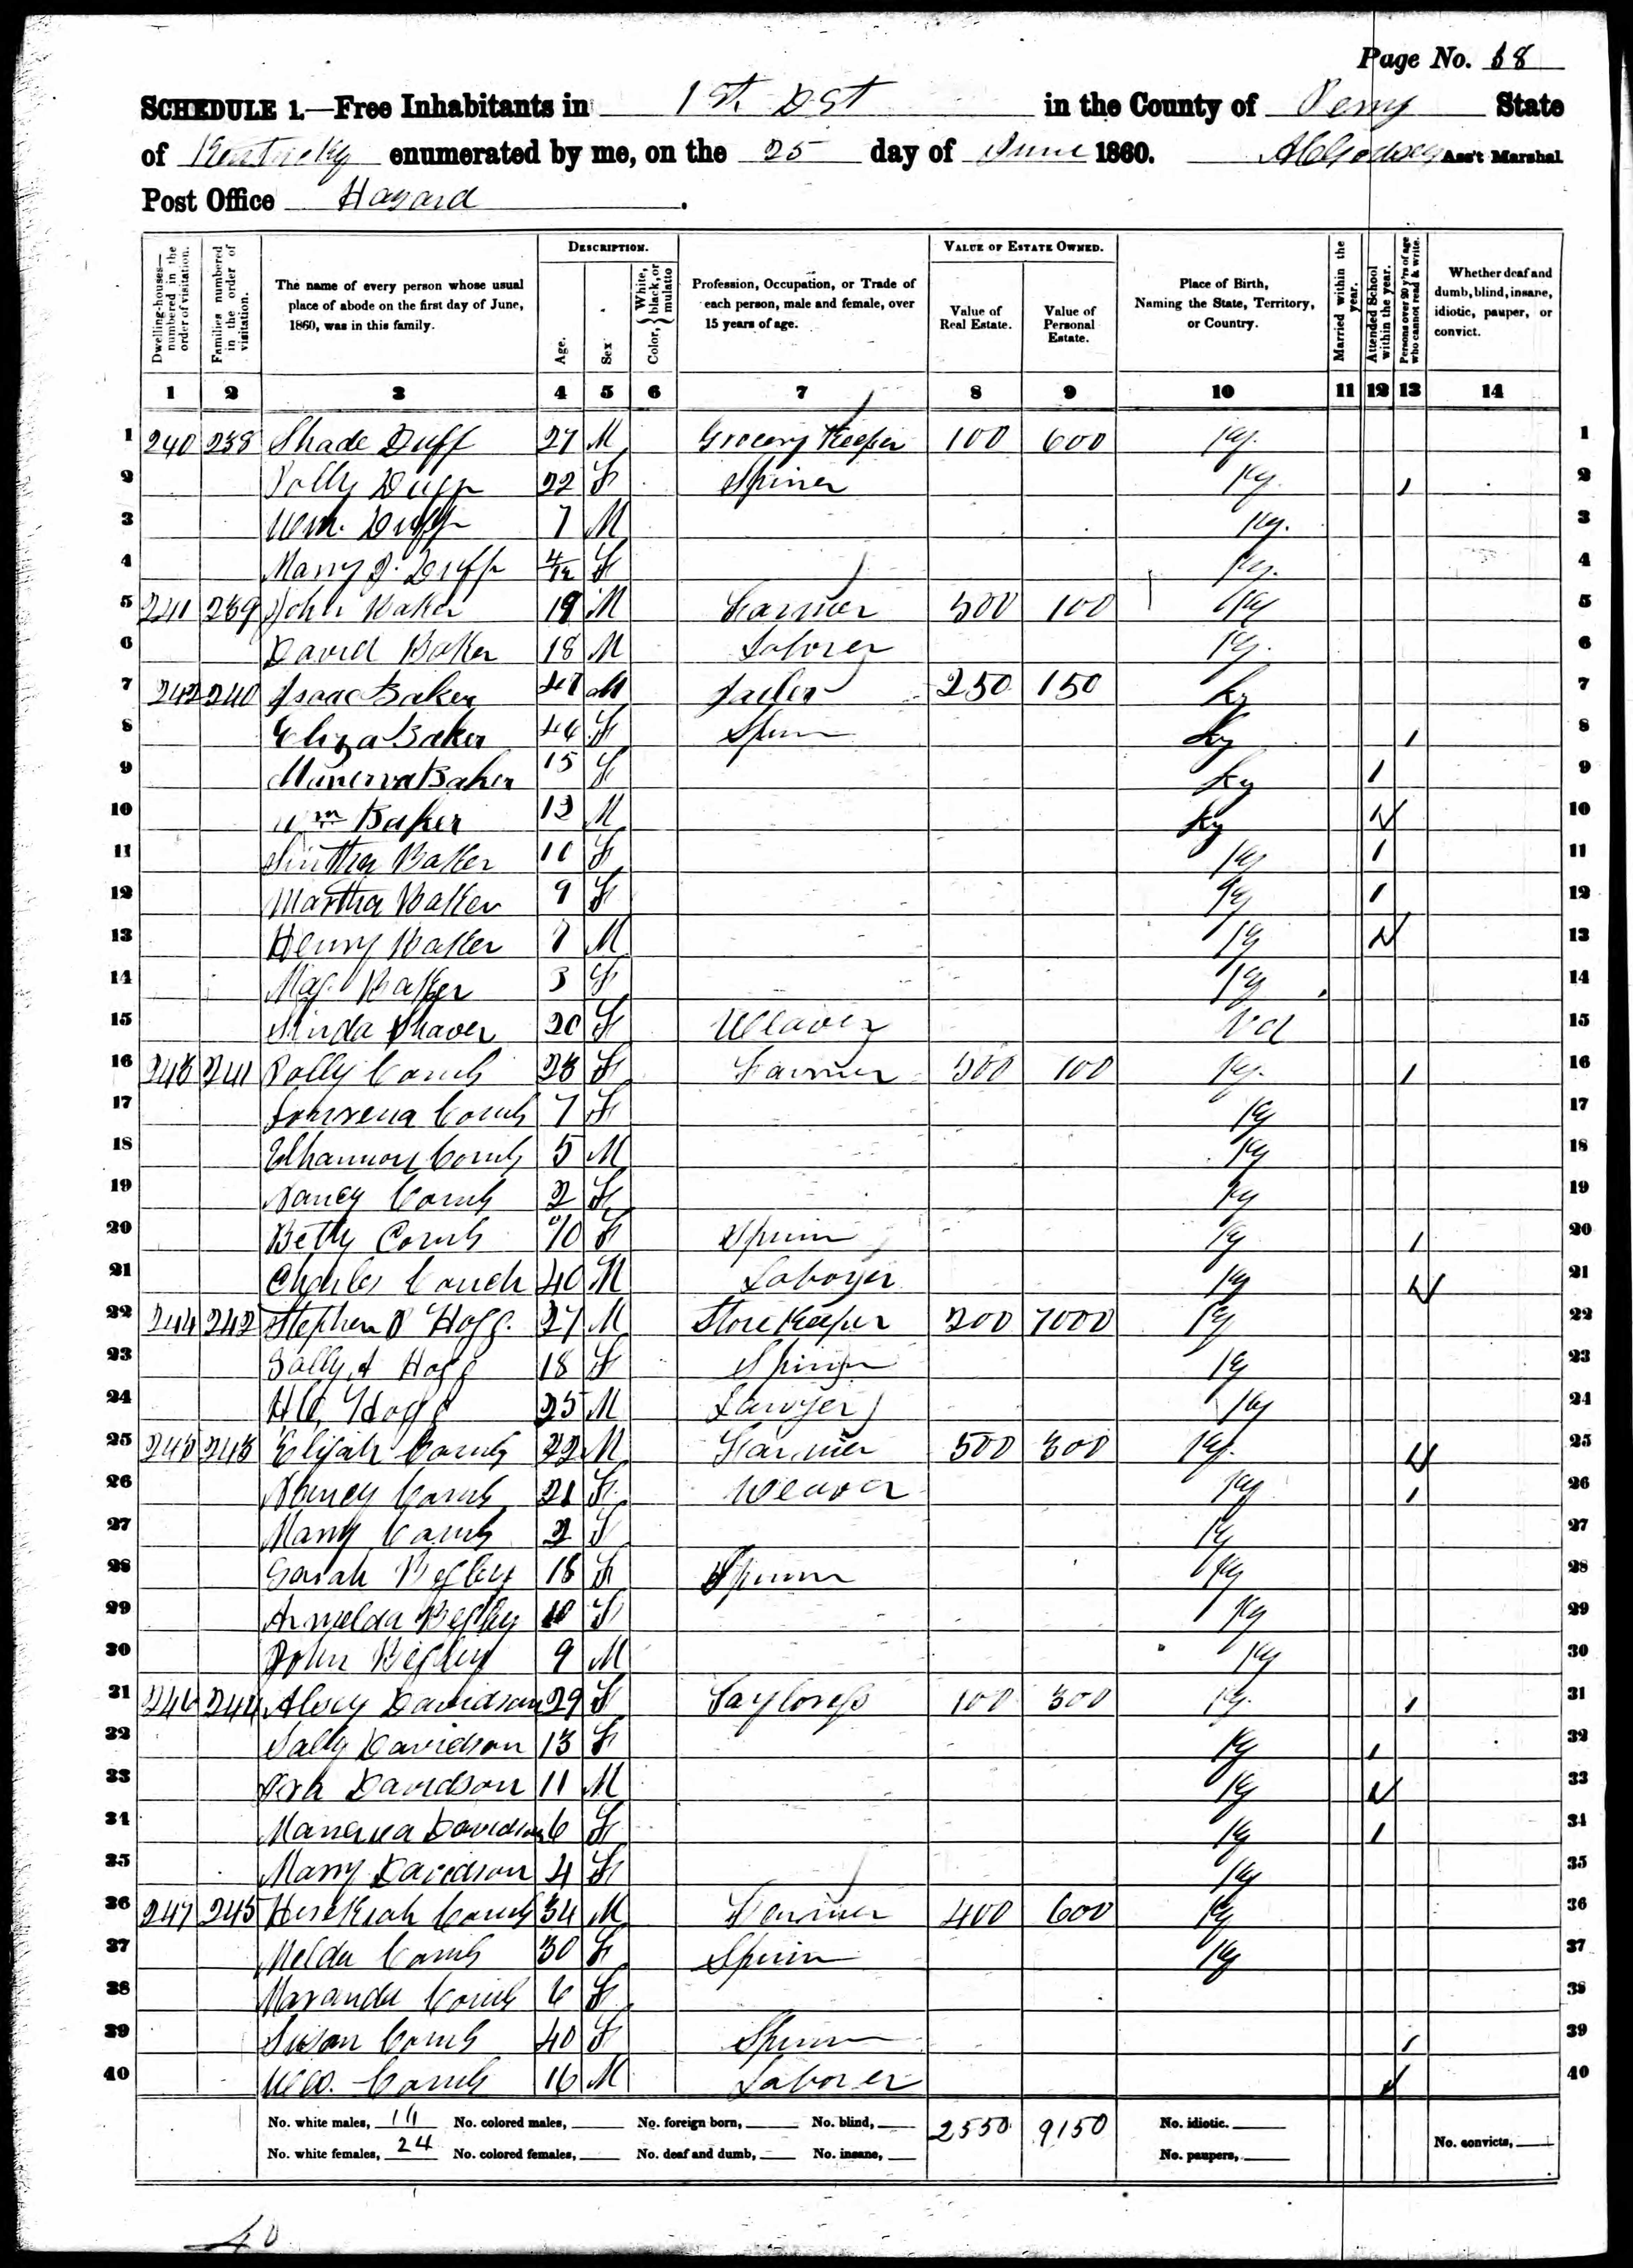 Page No. 38
SCHEDULE 1.—Free Inhabitants in 1st Dst in the County of Perry State
of Kentucky enumerated by me, on the 25 day of June 1860. Ass't Marshal
Post Office Hazard.
Dwelling-houses—numbered in the order of visitation. Families numbered in the order of visitation. The name of every person whose usual place of abode on the first day of June, 1860, was in this family. DESCRIPTION. Age. Sex. Color, { White, black, or mulatto Profession, Occupation, or Trade of each person, male and female, over 15 years of age. VALUE OF ESTATE OWNED. Value of Real Estate. Value of Personal Estate. Place of Birth, Naming the State, Territory, or Country. Married within the year. Attended School within the year. Persons over 20 y'rs of age who cannot read & write. Whether deaf and dumb, blind, insane, idiotic, pauper, or convict.
1 2 3 4 5 6 7 8 9 10 11 12 13 14
1 240 238 Shade Duff 27 M Grocery Keeper 100 600 Ky. 1
2 Polly Duff 22 F Spiner Ky. / 2
3 Wm. Duff 7 M Ky. 3
4 Marry J. Duff 4/12 F Ky. 4
5 241 239 John Baker 19 M Farmer 500 100 Ky 5
6 David Baker 18 M Laborer Ky. 6
7 242 240 Isaac Baker 47 M Jailor 250 150 Ky 7
8 Eliza Baker 46 F Spinn Ky / 8
9 Minerva Baker 15 F Ky / 9
10 Wm Baker 13 M Ky / 10
11 Sinthy Baker 10 F Ky / 11
12 Martha Baker 9 F Ky / 12
13 Henry Baker 7 M Ky / 13
14 Baker 3 F Ky 14
15 20 F Weaver Va 15
16 243 241 Polly Comb 23 F Farmer 500 100 Ky. / 16
17 Comb 7 F Ky 17
18 Elhannon Comb 5 M Ky 18
19 Nancy Comb 2 F Ky 19
20 Betty Comb 70 F Spinn Ky / 20
21 Charles Couch 40 M Laborer Ky / 21
22 244 242 Stephen P Hogg. 27 M Store Keeper 200 7000 Ky 22
23 Sally A Hogg 18 F Spinn Ky 23
24 Hogg 25 M Lawyer Ky 24
25 245 243 Elijah Comb 22 M Farmer 500 300 Ky. / 25
26 Nancy Comb 21 F Weaver Ky / 26
27 Marry Comb 2 F Ky 27
28 Sarah Begley 18 F Spinn Ky 28
29 Armelda Begley 10 F Ky 29
30 John Begley 9 M Ky 30
31 246 244 Alsey Davidson 29 F Tayloress 100 300 Ky. / 31
32 Sally Davidson 13 F Ky / 32
33 Davidson 11 M Ky / 33
34 Manerva Davidson 6 F Ky / 34
35 Marry Davidson 4 F Ky 35
36 247 245 Hesekiah Comb 34 M Farmer 400 600 Ky 36
37 Melda Comb 30 F Spinn Ky 37
38 Maranda Comb 6 F 38
39 Susan Comb 40 F Spinn / 39
40 Comb 16 M Laborer / 40
No. white males, No. colored males, No. foreign born, No. blind, 2550 9150 No. idiotic.
No. white females, 24 No. colored females, No. deaf and dumb, No. insane, No. paupers, No. convicts,
40